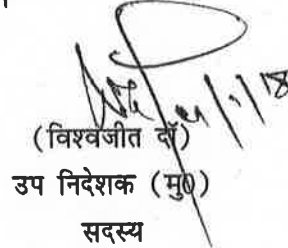 (विश्वजीत दॉ)
उप निदेशक (मु0)
सदस्य